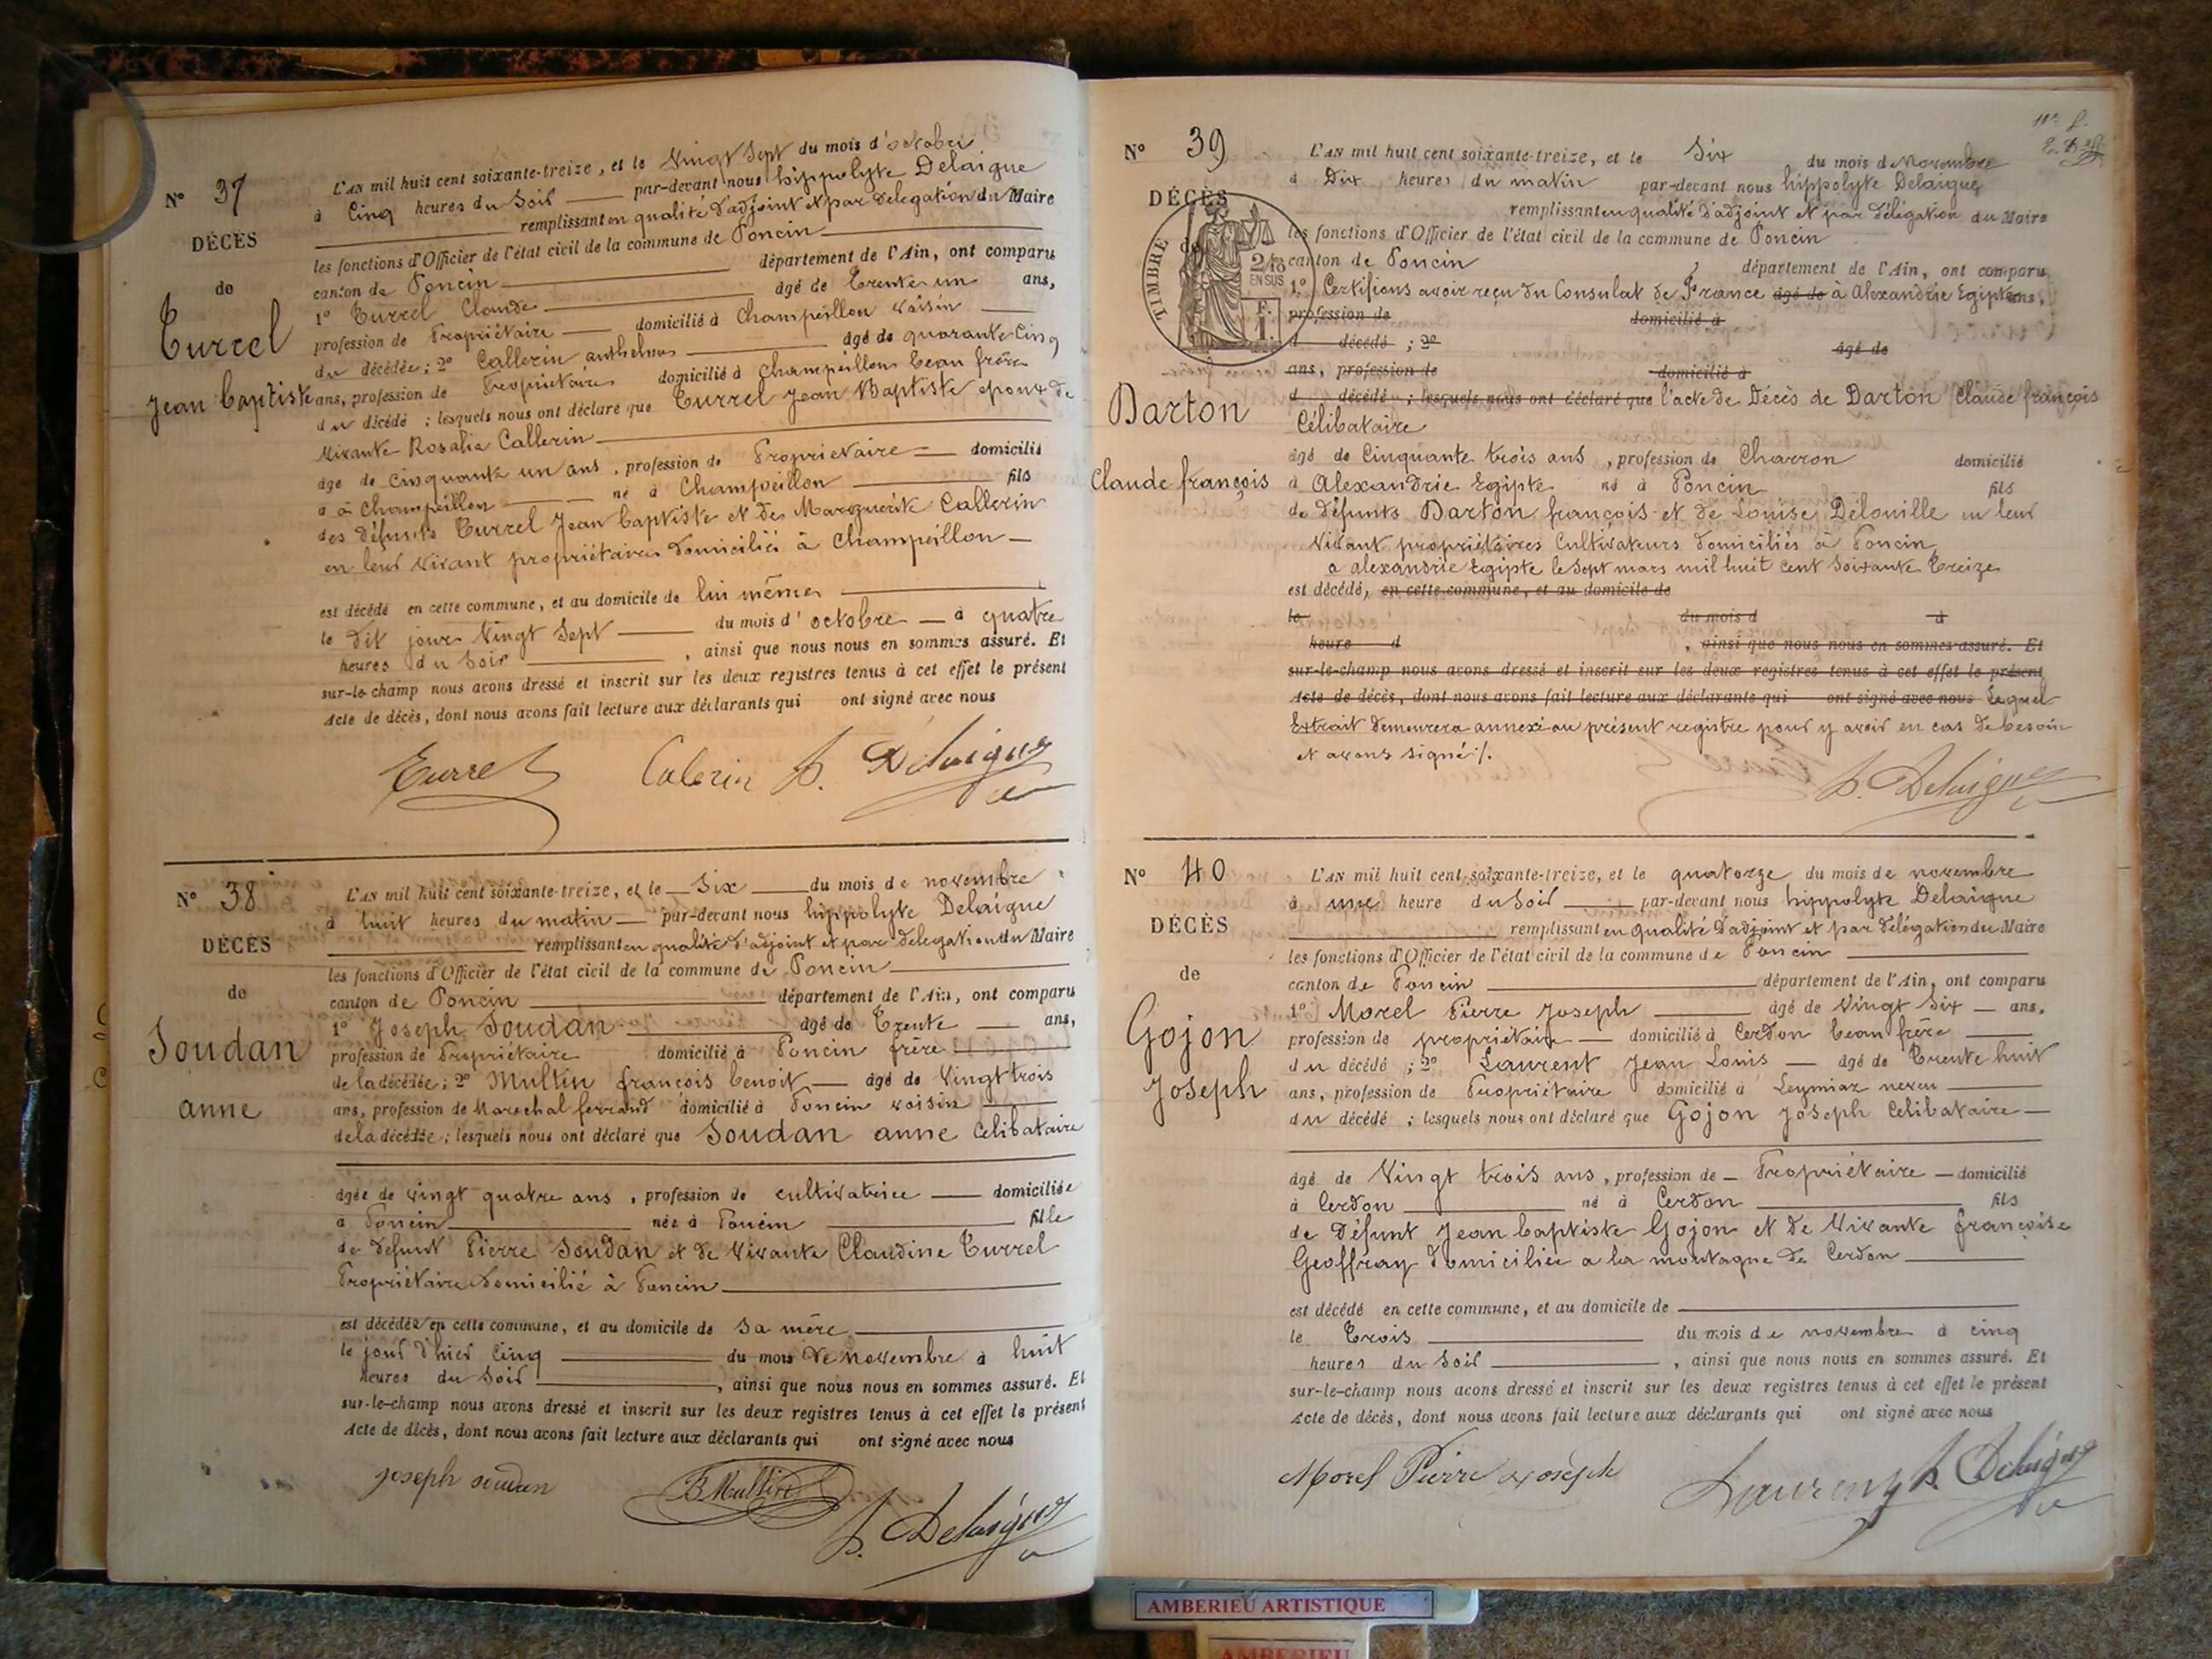 N° 37
DÉCÈS
de
Turrel
Jean baptiste
L'AN mil huit cent soixante-treize, et le Vingt Sept du mois d'octobre
à Cinq heures du Soir par-devant nous hippolyte Delaigue
remplissant en qualité d'adjoint et par délégation du Maire
les fonctions d'Officier de l'état civil de la commune de Poncin
canton de Poncin département de l'Ain, ont comparu
1° Turrel Claude âgé de trente un ans,
profession de Propriétaire domicilié à Champeillon voisin
du décédée; 2° Callerin anthelme âgé de quarante Cinq
ans, profession de Propriétaire domicilié à Champeillon beau frère
du décédé ; lesquels nous ont déclaré que Turrel Jean Baptiste epoux de
vivante Rosalie Callerin
âgé de cinquante un ans, profession de Proprietaire domicilié
a à Champeillon né à Champeillon fils
des défunts Turrel Jean baptiste et des Marguerite Callerin
en leur vivant propriétaires domiciliés à Champeillon
est décédé en cette commune, et au domicile de lui même
le dit jour Vingt Sept du mois d'octobre à quatre
heures du Soir, ainsi que nous nous en sommes assuré. Et
sur-le-champ nous avons dressé et inscrit sur les deux registres tenus à cet effet le présent
Acte de décès, dont nous avons fait lecture aux déclarants qui ont signé avec nous
Turrel Calerin h. Delaigue
N° 38
DÉCÈS
de
Soudan
anne
L'AN mil huit cent soixante-treize, et le Six du mois de novembre
à huit heures du matin par-devant nous hippolyte Delaigue
remplissant en qualité d'adjoint et par delegation du Maire
les fonctions d'Officier de l'état civil de la commune de Poncin
canton de Poncin département de l'Ain, ont comparu
1° Joseph Soudan âgé de trente ans,
profession de Propriétaire domicilié à Poncin frère
de la décédée; 2° Multin françois benoit âgé de Vingt trois
ans, profession de Marechal ferrand domicilié à Poncin voisin
de la décédée; lesquels nous ont déclaré que Soudan anne Celibataire
âgée de vingt quatre ans, profession de cultivatrice domiciliée
à Poncin née à Poncin fille
de defunt Pierre Soudan et de vivante Claudine Turrel
Propriétaire domicilié à Poncin
est décédée en cette commune, et au domicile de sa mère
le jour d'hier Cinq du mois de novembre à huit
heures du Soir, ainsi que nous nous en sommes assuré. Et
sur-le-champ nous avons dressé et inscrit sur les deux registres tenus à cet effet le présent
Acte de décès, dont nous avons fait lecture aux déclarants qui ont signé avec nous
joseph soudan B Multin
h. Delaigue
N° 39
DÉCÈS
de
TIMBRE
2/10
EN SUS
F.
1.
Darton
Claude françois
L'AN mil huit cent soixante-treize, et le Six du mois de Novembre
à Dix heures du matin par-devant nous hippolyte Delaigue
remplissant en qualité d'adjoint et par délégation du Maire
les fonctions d'Officier de l'état civil de la commune de Poncin
canton de Poncin département de l'Ain, ont comparu
1° Certifions avoir reçu du Consulat de France âgé de à Alexandrie Egipte ans,
profession de domicilié à
d décédé ; 2° âgé de
ans, profession de domicilié à
d décédé ; lesquels nous ont déclaré que l'acte de Décès de Darton Claude françois
Célibataire
âgé de Cinquante trois ans, profession de Charron domicilié
à Alexandrie Egipte né à Poncin fils
de défunts Darton françois et de Louise Délouille en leur
vivant propriétaires Cultivateurs domiciliés à Poncin
a alexandrie Egipte le Sept mars mil huit cent Soixante treize
est décédé, en cette commune, et au domicile de
le du mois d à
heure d, ainsi que nous nous en sommes assuré. Et
sur-le-champ nous avons dressé et inscrit sur les deux registres tenus à cet effet le présent
Acte de décès, dont nous avons fait lecture aux déclarants qui ont signé avec nous Lequel
Extrait demeurera annexé au présent registre pour y avoir en cas de besoin
et avons signé /.
h. Delaigue
N° 40
DÉCÈS
de
Gojon
Joseph
L'AN mil huit cent soixante-treize, et le quatorze du mois de novembre
à une heure du Soir par-devant nous hippolyte Delaigue
remplissant en qualité d'adjoint et par délégation du Maire
les fonctions d'Officier de l'état civil de la commune de Poncin
canton de Poncin département de l'Ain, ont comparu
1° Morel Pierre Joseph âgé de Vingt Six ans,
profession de propriétaire domicilié à Cerdon beau frère
du décédé ; 2° Laurent Jean Louis âgé de trente huit
ans, profession de Propriétaire domicilié à Leymiaz neveu
du décédé ; lesquels nous ont déclaré que Gojon Joseph Celibataire
âgé de Vingt trois ans, profession de Propriétaire domicilié
à Cerdon né à Cerdon fils
de défunt Jean baptiste Gojon et de Vivante françoise
Geoffray domiciliée a la montagne de Cerdon
est décédé en cette commune, et au domicile de
le trois du mois de novembre à cinq
heures du Soir, ainsi que nous nous en sommes assuré. Et
sur-le-champ nous avons dressé et inscrit sur les deux registres tenus à cet effet le présent
Acte de décès, dont nous avons fait lecture aux déclarants qui ont signé avec nous
Morel Pierre Joseph Laurent h. Delaigue
AMBERIEU ARTISTIQUE
AMBERIEU